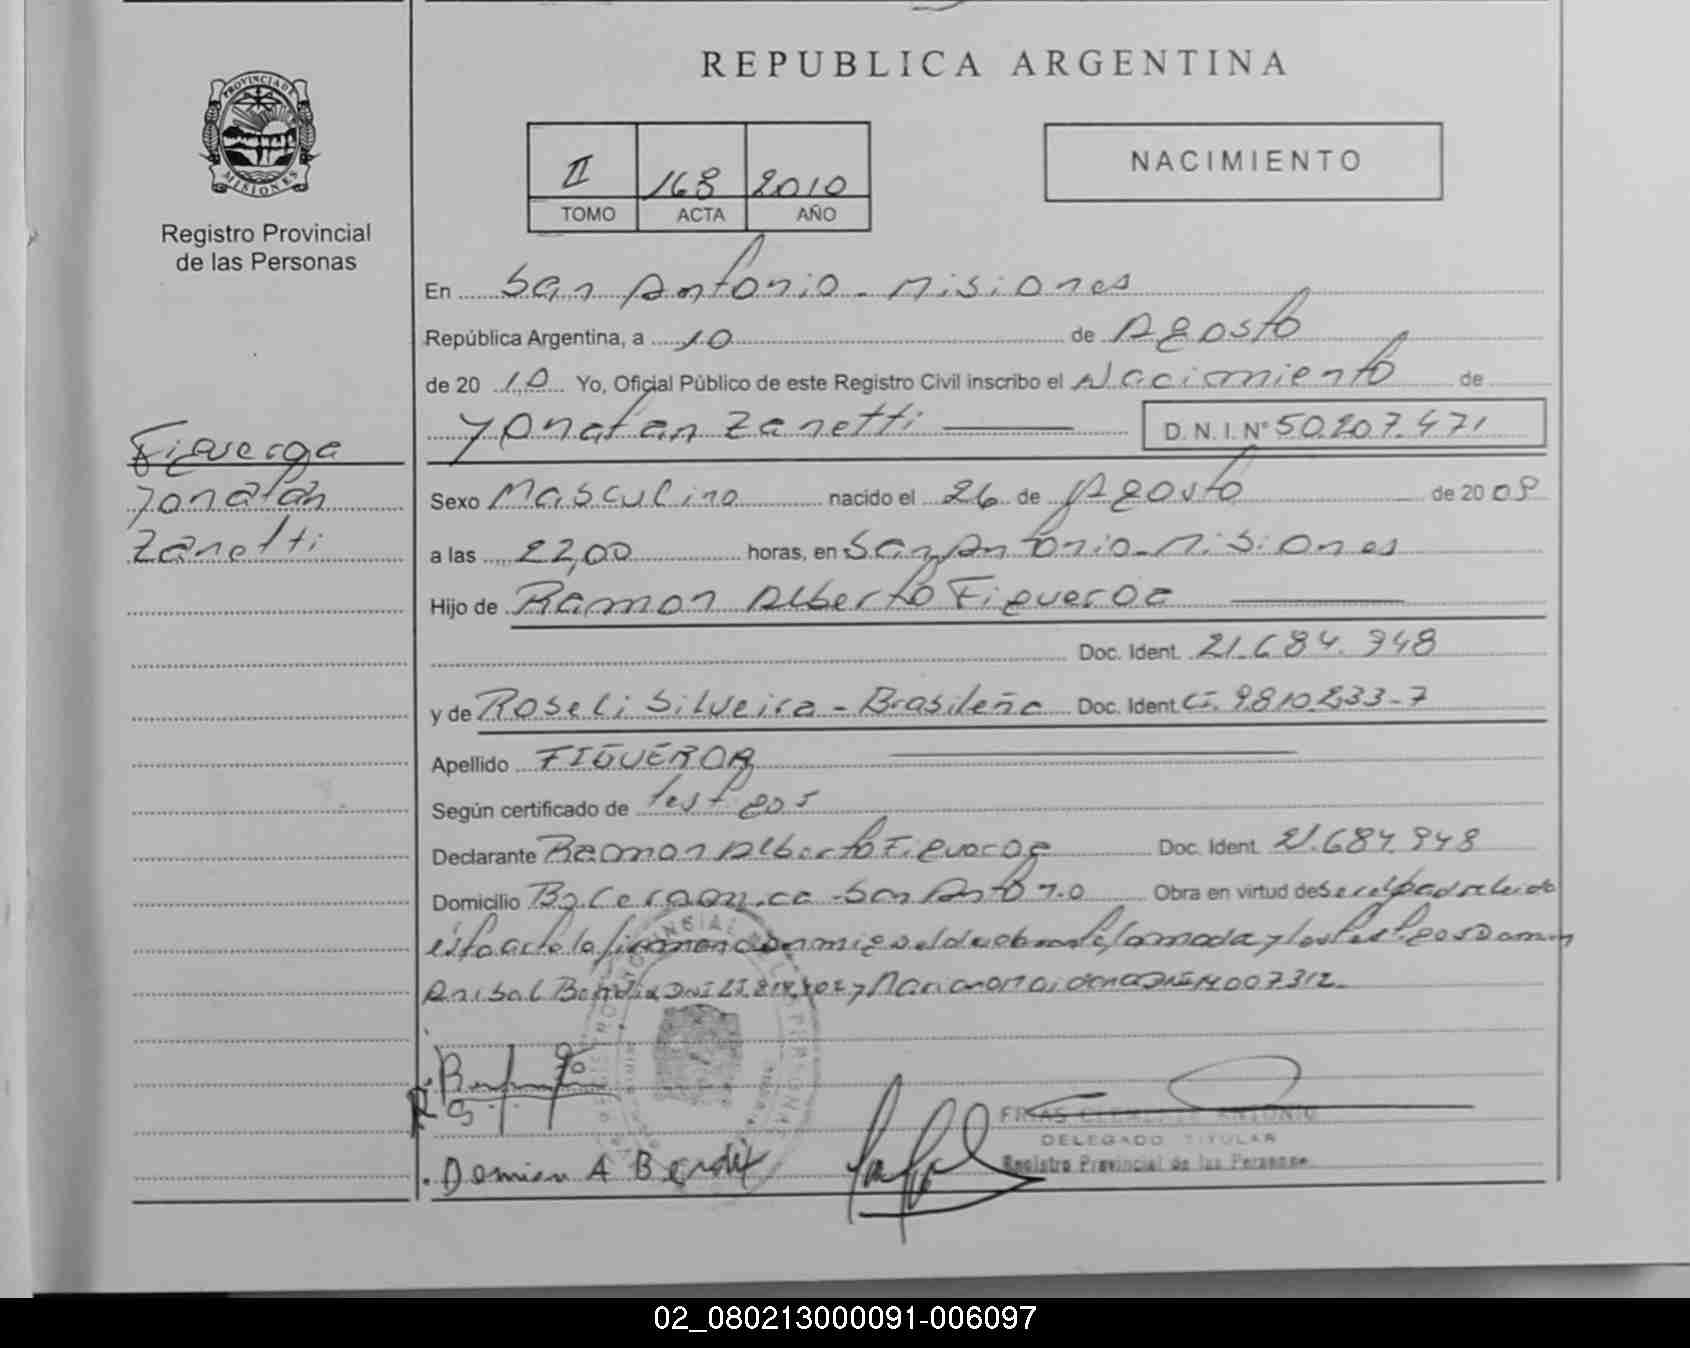 REPUBLICA ARGENTINA
PROVINCIA DE MISIONES
Registro Provincial
de las Personas
II 168 2010
TOMO ACTA AÑO
NACIMIENTO
En San Antonio - Misiones
República Argentina, a 10 de Agosto
de 20 10 Yo, Oficial Público de este Registro Civil inscribo el Nacimiento de
Yonatan Zanetti D. N. I. Nº 50.207.471
Figueroa
Yonatan
Zanetti
Sexo Masculino nacido el 26 de Agosto de 20 09
a las 22,00 horas, en San Antonio - Misiones
Hijo de Ramon Alberto Figueroa
Doc. Ident. 21.684.948
y de Roseli Silveira - Brasileña Doc. Ident. CI. 9810233-7
Apellido FIGUEROA
Según certificado de testigos
Declarante Ramon Alberto Figueroa Doc. Ident. 21.684.948
Domicilio Bº Ceramica - San Antonio Obra en virtud de Ser el padre leida
esta acta la firman conmigo el declarante, la madre y los testigos Damian
Anibal Bendix DNI y
Damian A Bendix
FRIAS CLEMENTE ANTONIO
DELEGADO TITULAR
Registro Provincial de las Personas
02_080213000091-006097